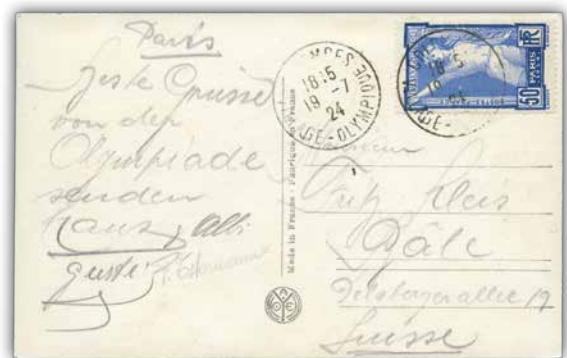 Paris
Beste Grüsse
von der
Olympiade
senden
Hans, Albi
Gusti
Made in France - Fabriqué en France
18 15
19 - 7
24
AGE-OLYMPIQUE
18 15
19
24
50 PARIS RF
Monsieur
Fritz Kleis
Bâle
Delsbergerallee 19
Suisse